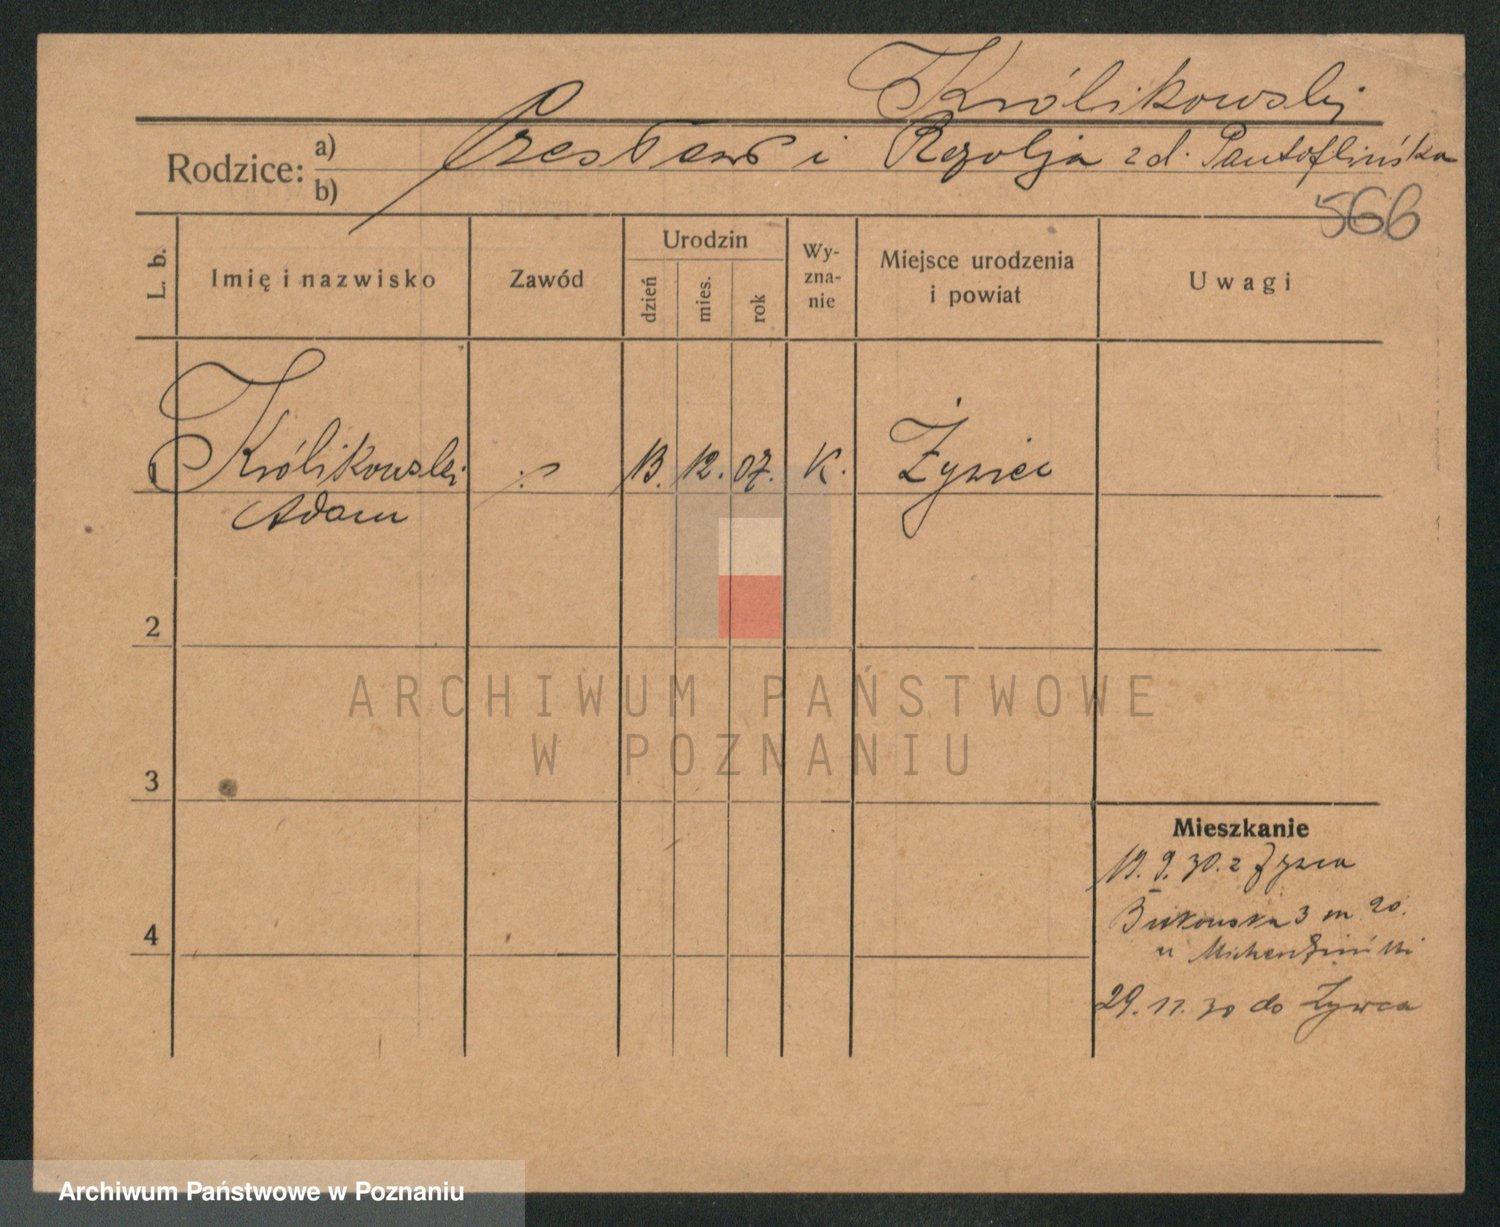 Królikowski
Rodzice: a) Czesław i Rozalja z d. Pantoflińska
b)
566
L. b.
Imię i nazwisko
Zawód
Urodzin
dzień
mies.
rok
Wy-
zna-
nie
Miejsce urodzenia
i powiat
Uwagi
1 Królikowski 13. 12. 07. K. Żywiec
Adam
2
3
4
ARCHIWUM PAŃSTWOWE
W POZNANIU
Mieszkanie
19. 9. 30. z Żywca
Bukowska 3 m 20.
u
29. 11. 30 do Żywca
Archiwum Państwowe w Poznaniu